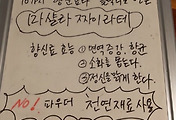 [마살라 짜이라떼]
향신료 효능 ① 면역 증강, 항균
② 소화를 돕는다.
③ 정신을 맑게 한다.
NO! 파우더 천연재료 사용